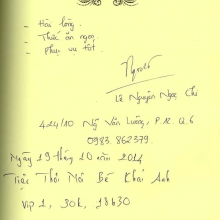 - Hài lòng.
- Thức ăn ngon
- Phục vụ tốt.
Lê Nguyễn Ngọc Chi
424/10 Ng Văn Luông, P.12 Q.6
0983.862379.
Ngày 19 tháng 10 năm 2014
Tiệc Thôi Nôi Bé Khải Anh
Vip 1, 30k, 18h30